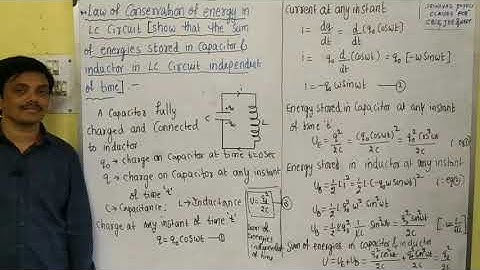 Law of Conservation of energy in
LC Circuit [show that the sum
of energies stored in Capacitor &
inductor in LC Circuit independent
of time] :-
A Capacitor fully
charged and Connected
to inductor
q₀ → charge on Capacitor at time t=0sec
q → charge on Capacitor at any instant
of time 't'
C → Capacitance; L → Inductance
Charge at any instant of time 't'
q = q₀ coswt — ①
i
C
L
U = q₀²/2C
Sum of
Energies
independent
of time
Current at any instant
i = dq/dt = d/dt (q₀ coswt)
i = q₀ d/dt (coswt) = q₀ [-w sinwt]
i = -q₀ w sinwt — ②
Energy stored in Capacitor at any instant
of time 't'
U_E = q²/2C = (q₀ coswt)²/2C = q₀² cos²wt/2C
Energy stored in inductor at any instant
U_B = ½ L i² = ½ L (-q₀ w sinwt)²
U_B = ½ L q₀² w² sin²wt
U_B = ½ L q₀² 1/LC sin²wt = q₀² sin²wt/2C
Sum of energies in capacitor & inductor
U = U_E + U_B = q₀² cos²wt/2C + q₀² sin²wt/2C = q₀²/2C